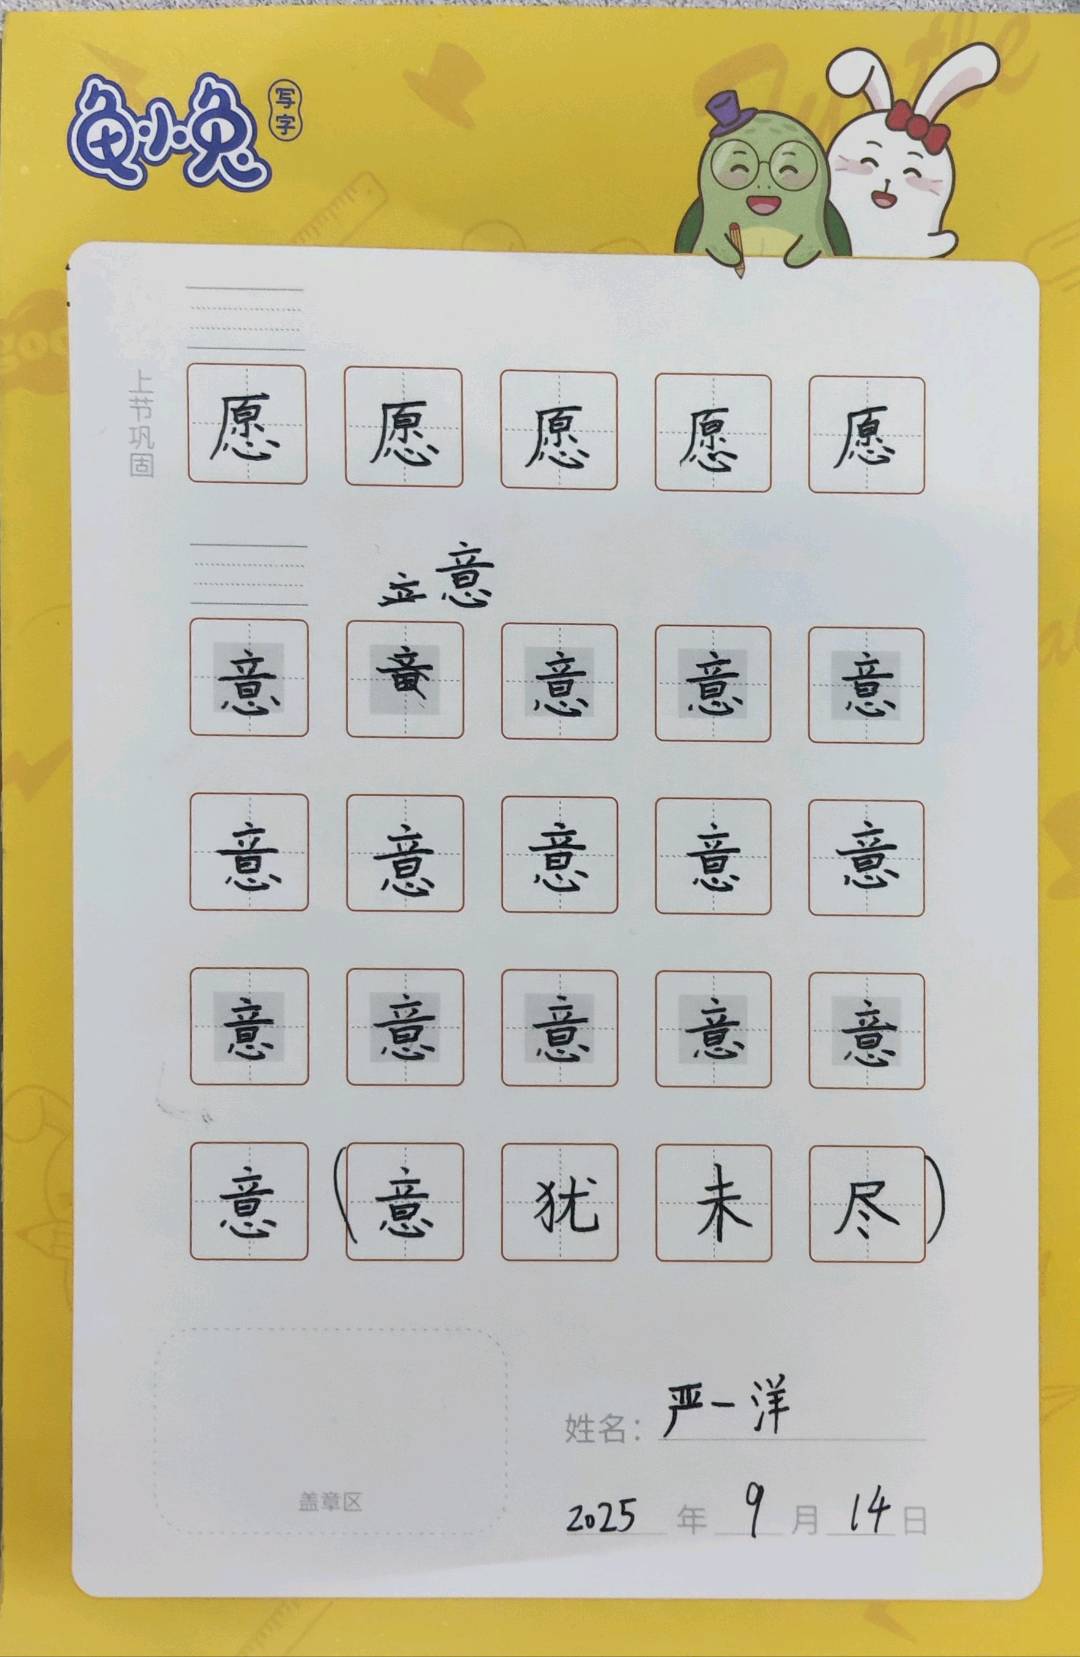 龟小兔 写字
上节巩固
愿 愿 愿 愿 愿
立 意
意 意 意 意
意 意 意 意 意
意 意 意 意 意
意 (意 犹 未 尽)
姓名: 严一洋
盖章区
2025 年 9 月 14 日